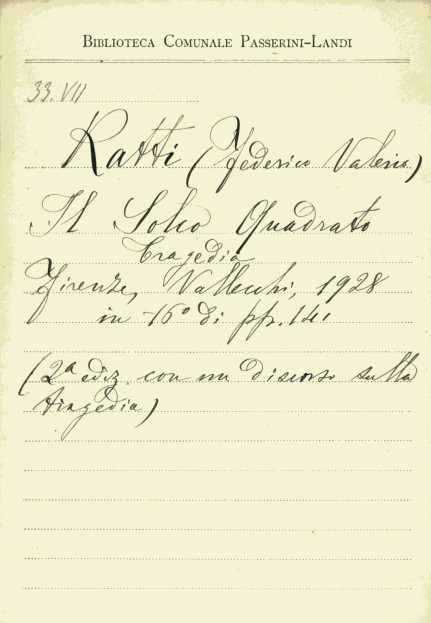 BIBLIOTECA COMUNALE PASSERINI-LANDI
33.VII
Ratti (Federico Valerio)
Il Solco Quadrato
Tragedia
Firenze, Vallecchi, 1928
in -16° di pp. 141
(2ª ediz. con un discorso sulla
tragedia)